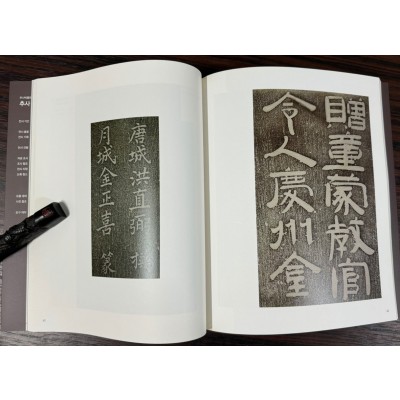 추사
唐城洪直弼 撰
月城金正喜 篆
贈童蒙教官
令人慶州金